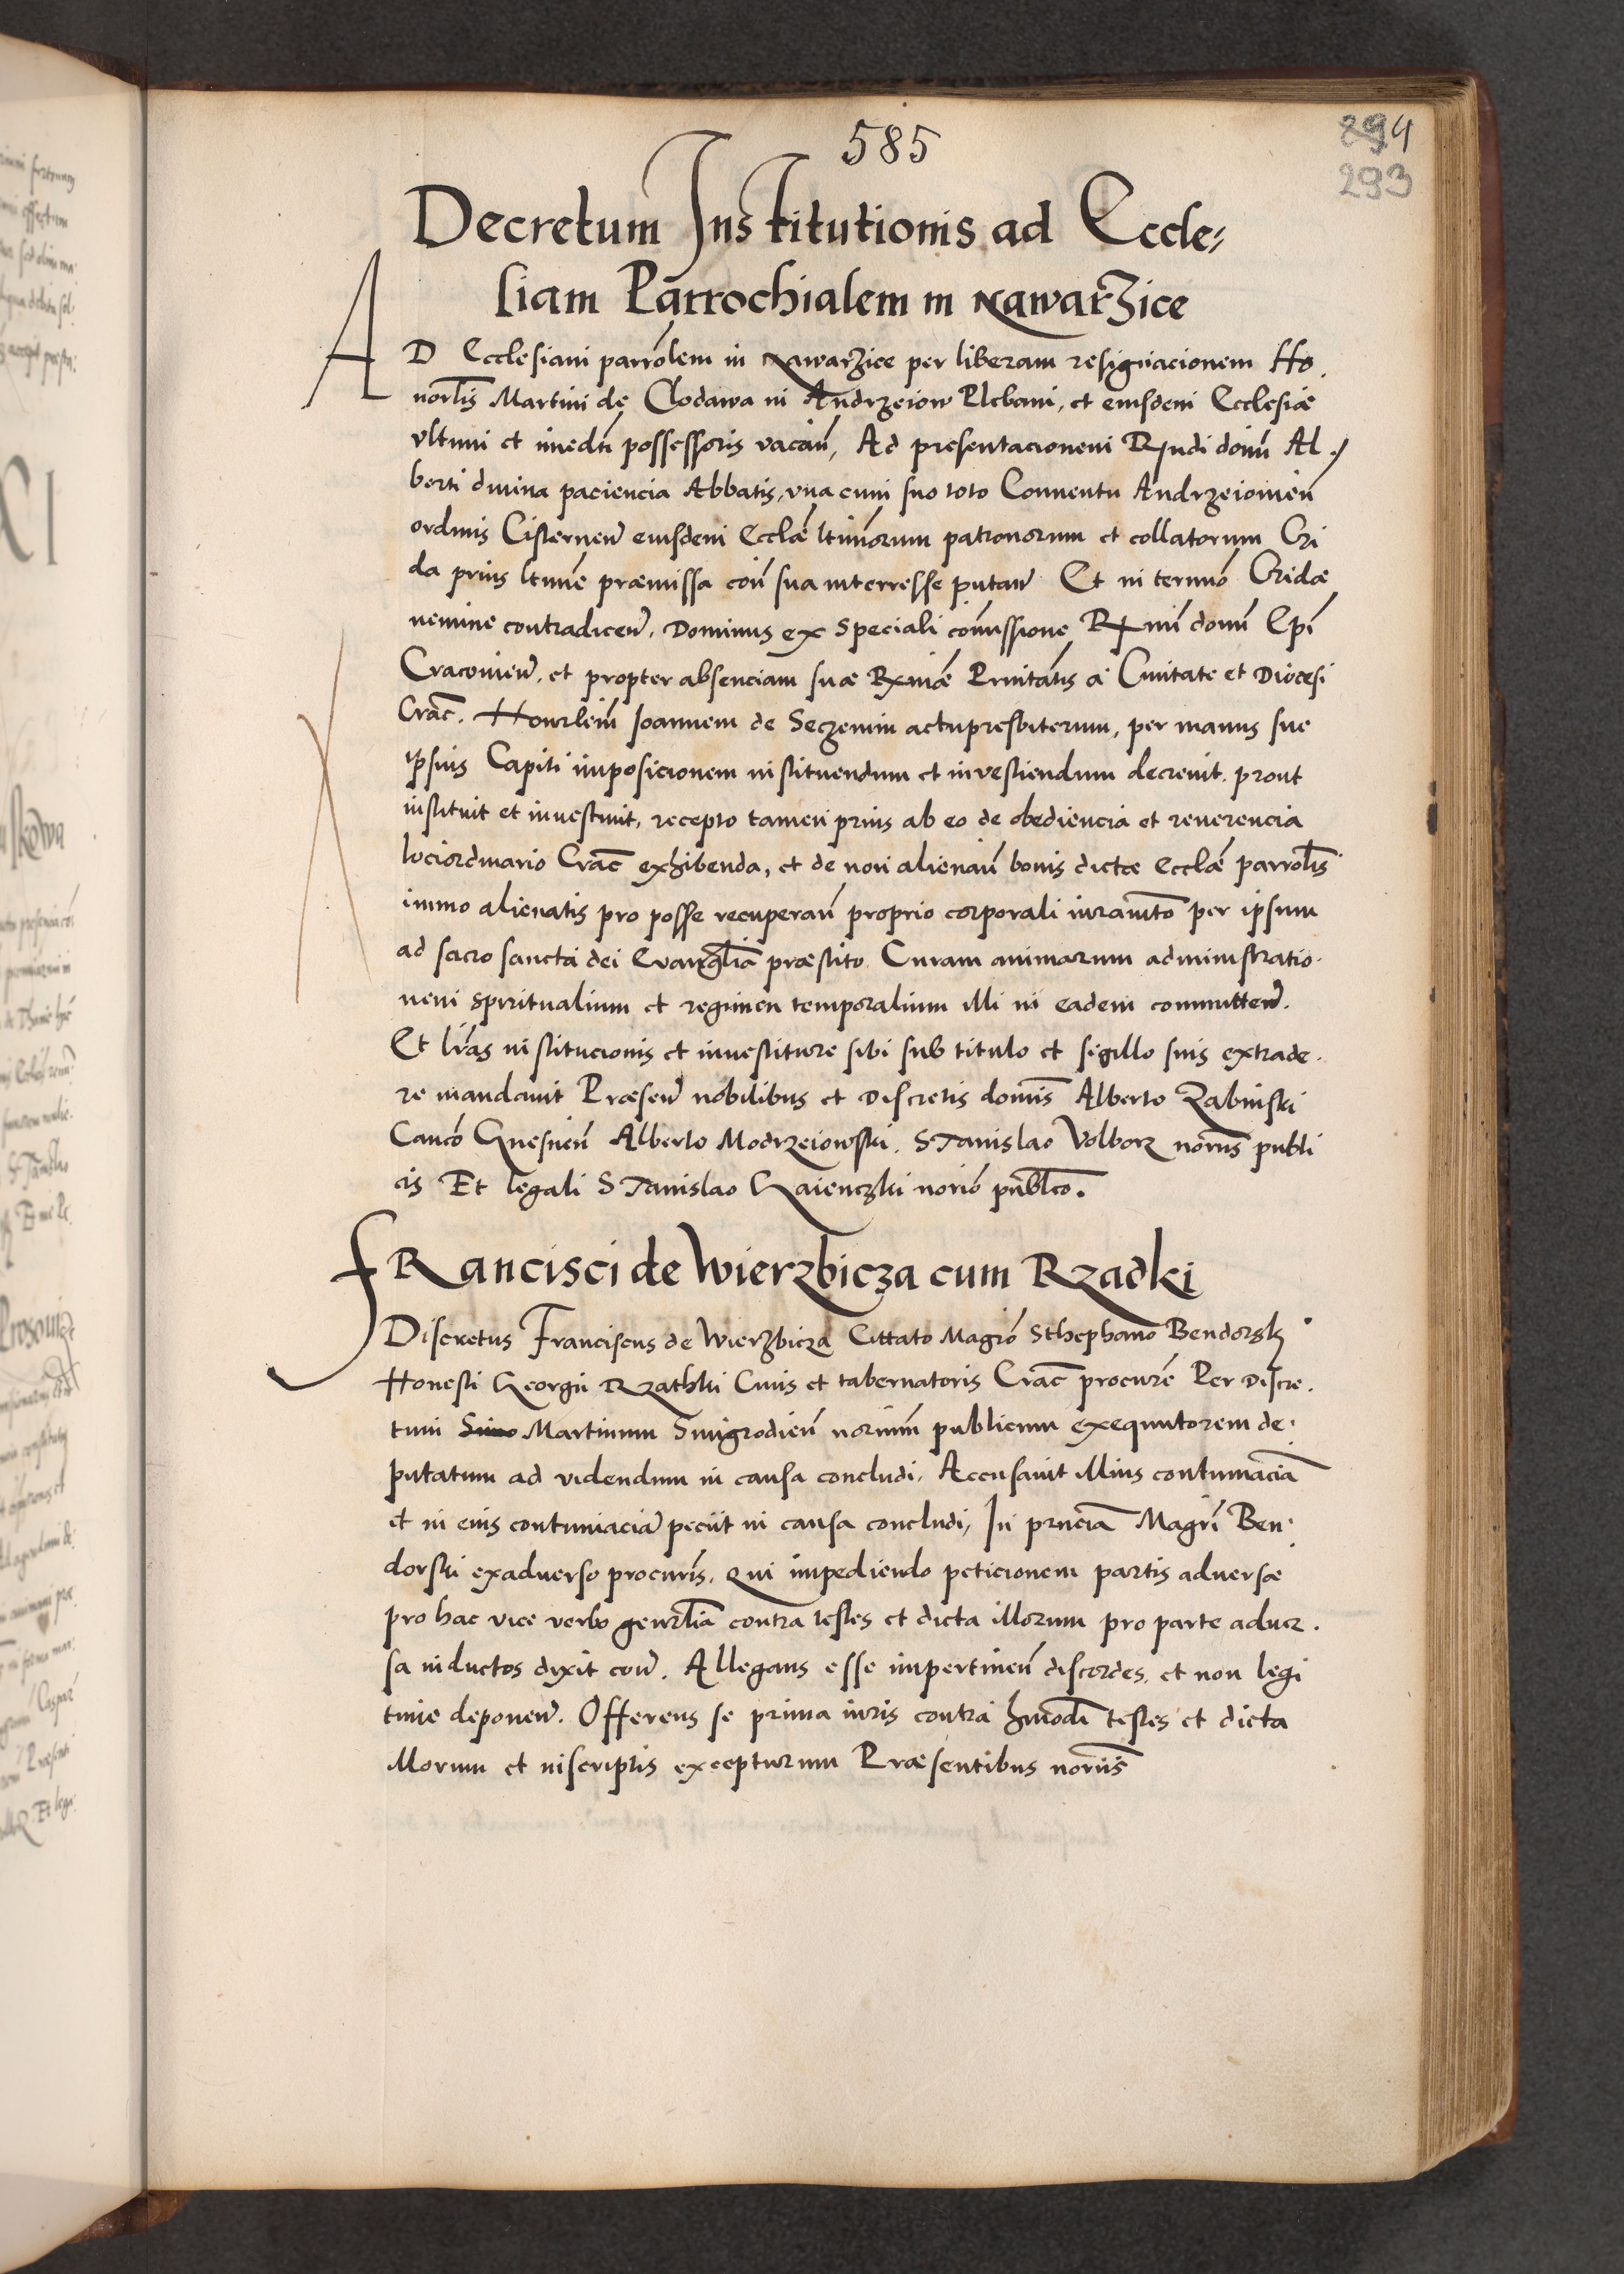 585
294
293
Decretum Institutionis ad Eccle⸗
siam Parrochialem in Nawarzice
AD Ecclesiam parrolem in Nawarzice per liberam resignacionem Ho.
norlis Martini de Clodawa in Andrzeiow Plebani, et eiusdem Ecclesiæ
vltimi et imedti possessoris vacan, Ad presentacionem Rndi domi Al
berti diuina paciencia Abbatis, vna cum suo toto Conuentu Andrzeiouien
ordinis Cistercien eiusdem Ecclæ ltimorum patronorum et collatorum Cri
da prius ltime præmissa con sua interresse putan Et in termino Cridæ
nemine contradicen. Dominus ex speciali comissione Rmi domi Epi
Cracouien. et propter absenciam suæ Rmæ Prnitatis a Ciuitate et Diocesi
Crac. Honrlem Joannem de Seczemin actupresbiterum, per manus sue
ipsius Capiti imposicionem instituendum et inuestiendum decreuit. prout
instituit et inuestiuit, recepto tamen prius ab eo de obediencia et reuerencia
lociordinario Crac exhibenda, et de non alienan bonis dictæ Ecclæ parrolis
immo alienatis pro posse recuperan proprio corporali iuramto per ipsum
ad sacro sancta dei Euanglia præstito. Curam animarum administratio.
nem spiritualium et regimen temporalium illi in eadem committen.
Et lras institucionis et inuestiture sibi sub titulo et sigillo suis extrade.
re mandauit Præsen nobilibus et Discretis domis Alberto Zabinski
Canco Gnesnen Alberto Modrzeiowski. Stanislao Volborz noriis publi
cis Et legali Stanislao Gaienczki norio publco.
Francisci de Wierzbicza cum Rzadki
Discretus Franciscus de Wierzbicza Cittato Magro Sthephano Bendorsk
Honesti Georgii Rzathki Ciuis et tabernatoris Crac procure Per Discre.
tum Simo Martinum Smigrodien norium publicum exequutorem de.
putatum ad videndum in causa concludi. Accusauit illius contumacia
et in eius contumacia peciit in causa concludi, In prncia Magri Ben.
dorski exaduerso procuris. Qui impediendo peticionem partis aduersæ
pro hac vice verbo genrlia contra testes et dicta illorum pro parte aduer.
sa inductos dixit con. Allegans esse impertinen discordes, et non legi
time deponen. Offerens se prima iuris contra hmodi testes et dicta
illorum et inscriptis excepturum Præsentibus noriis